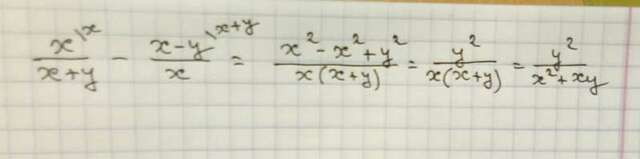 x\x/(x+y) - (x-y)\x+y/x = (x²-x²+y²)/(x(x+y)) = y²/(x(x+y)) = y²/(x²+xy)